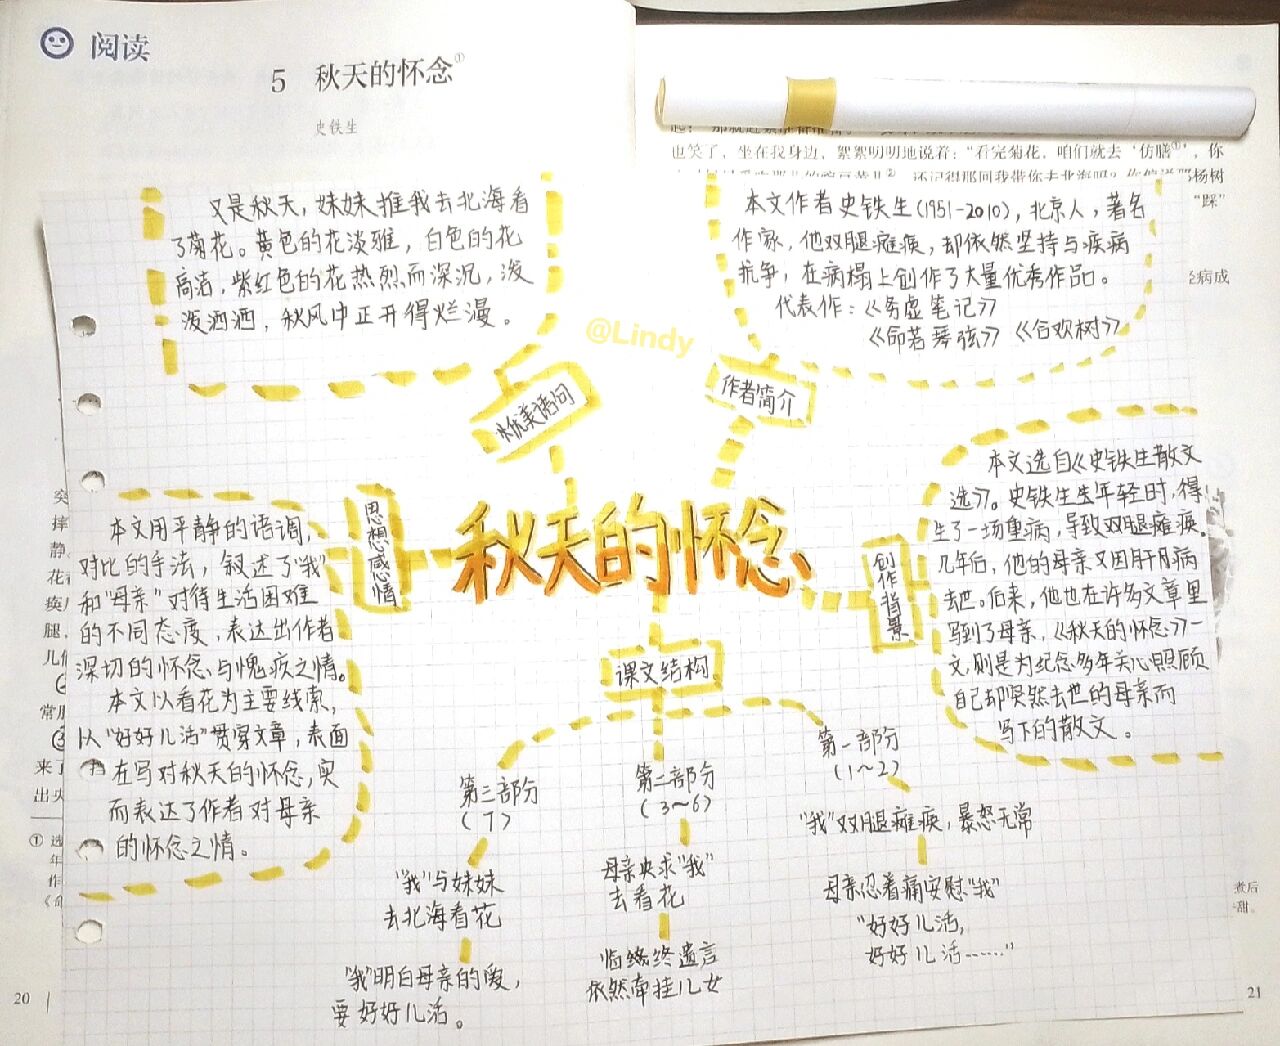 阅读
5 秋天的怀念①
史铁生
也笑了，坐在我身边，絮絮叨叨地说着：“看完菊花，咱们就去‘仿膳①’，你
还记得那回我带你去北海吗？你偏说那杨树
“踩
经病成
又是秋天，妹妹推我去北海看
了菊花。黄色的花淡雅，白色的花
高洁，紫红色的花热烈而深沉，泼
泼洒洒，秋风中正开得烂漫。
优美语句
本文作者史铁生(1951-2010)，北京人，著名
作家，他双腿瘫痪，却依然坚持与疾病
抗争，在病榻上创作了大量优秀作品。
代表作：《务虚笔记》
《命若琴弦》《合欢树》
作者简介
@Lindy
秋天的怀念
思想感情
本文用平静的语调，
对比的手法，叙述了“我”
和“母亲”对待生活困难
的不同态度，表达出作者
深切的怀念与愧疚之情。
本文以看花为主要线索，
以“好好儿活”贯穿文章，表面
在写对秋天的怀念，实
而表达了作者对母亲
的怀念之情。
创作背景
本文选自《史铁生散文
选》。史铁生生年轻时，得
生了一场重病，导致双腿瘫痪。
几年后，他的母亲又因肝病
去世。后来，他也在许多文章里
写到了母亲，《秋天的怀念》一
文，则是为纪念多年关心照顾
自己却突然去世的母亲而
写下的散文。
课文结构
第三部分
(7)
“我”与妹妹
去北海看花
“我”明白母亲的爱，
要好好儿活。
第二部分
(3~6)
母亲央求“我”
去看花
临终遗言
依然牵挂儿女
第一部分
(1~2)
“我”双腿瘫痪，暴怒无常
母亲忍着痛安慰“我”
“好好儿活，
好好儿活……”
突
摔
静
花
痪
腿，
儿
常
③
来了
出头
① 选
年
作
煮后
甜。
20
21